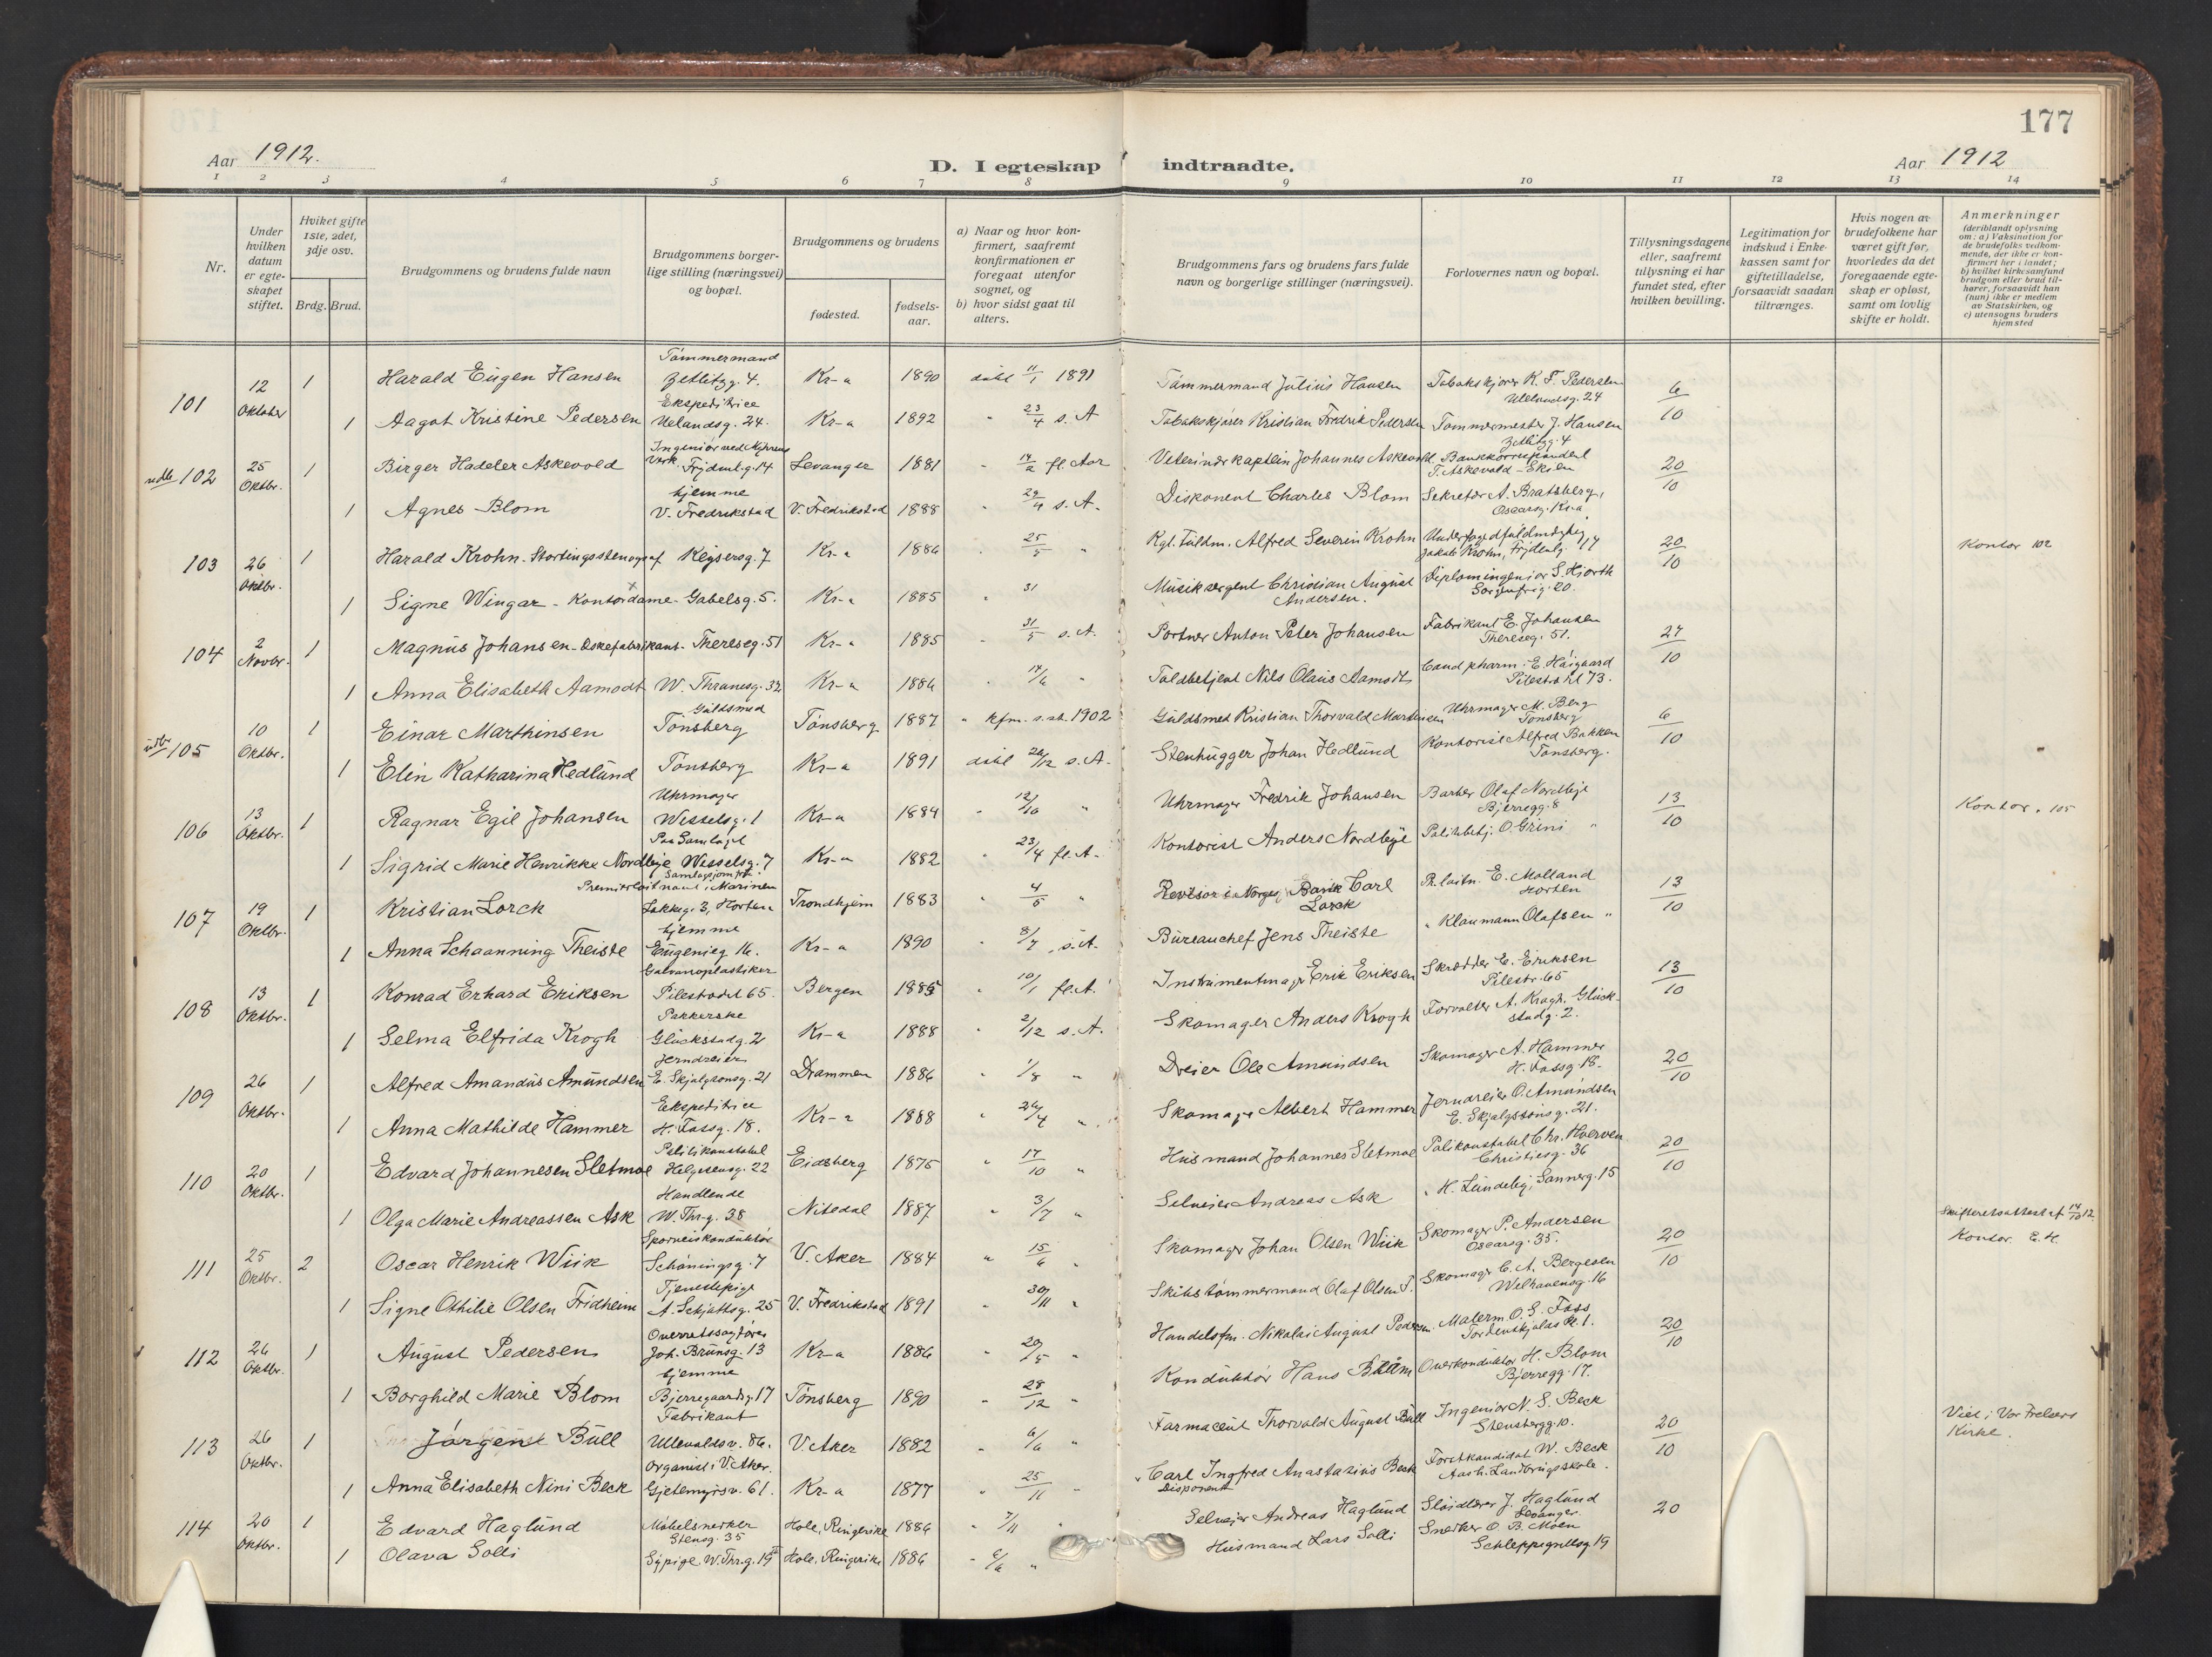 177
Aar 1912.
D. I egteskap indtraadte.
Aar 1912
1 2 3 4 5 6 7 8 9 10 11 12 13 14
Nr.
Under hvilken datum er egteskapet stiftet.
Hviket gifte 1ste, 2det, 3dje osv.
Brdg. Brud.
Brudgommens og brudens fulde navn
Brudgommens borgerlige stilling (næringsvei) og bopæl.
Brudgommens og brudens
fødested.
fødselsaar.
a) Naar og hvor konfirmert, saafremt konfirmationen er foregaat utenfor sognet, og
b) hvor sidst gaat til alters.
Brudgommens fars og brudens fars fulde navn og borgerlige stillinger (næringsvei).
Forlovernes navn og bopæl.
Tillysningsdagene eller, saafremt tillysning ei har fundet sted, efter hvilken bevilling.
Legitimation for indskud i Enkekassen samt for giftetilladelse, forsaavidt saadan tiltrænges.
Hvis nogen av brudefolkene har været gift før, hvorledes da det foregaaende egteskap er opløst, samt om lovlig skifte er holdt.
Anmerkninger (deriblandt oplysning om: a) Vaksination for de brudefolks vedkommende, der ikke er konfirmert her i landet; b) hvilket kirkesamfund brudgom eller brud tilhører, forsaavidt han (hun) ikke er medlem av Statskirken, og c) utensogns bruders hjemsted
101 12 Oktober 1 Harald Eugen Hansen Tømmermand Zetlitzg. 4. Kr-a 1890 døbt 11/1 1891 Tømmermand Julius Hansen Tobakskjører K. F. Pedersen Uelandsg. 24 6/10
1 Aagot Kristine Pedersen Ekspeditrice Uelandsg. 24. Kr-a 1892 " 23/4 s. A Tobakskjører Kristian Fredrik Pedersen Tømmermester J. Hansen Zetlitzg. 4
102 25 Oktbr. 1 Birger Hadeler Askevold Ingeniør ved Myrens Verk. Frydenl.g. 14 Levanger 1881 " 14/2 fl. Aar Veterinærkaptein Johannes Askevold Bankkorrespondent T. Askevold - Skien 20/10
1 Agnes Blom hjemme V. Fredrikstad V. Fredrikstad 1888 " 29/4 s. A. Diskonent Charles Blom Sekretær A. Bratsberg, Oscarsg. Kr.a
103 26 Oktbr. 1 Harald Krohn - Stortingsstenograf Keysersg. 7 Kr-a 1886 " 25/5 " Kgl. Fuldm. Alfred Severin Krohn Jakob Krohn, Frydenlg. 14 20/10 Kontor 102
1 Signe Wingar - Kontordame - Gabelsg. 5. Kr-a 1885 " 31 Musiksergent Christian August Andersen. Diplomingeniør S. Hjorth Sorgenfrig. 20.
104 2 Novbr. 1 Magnus Johansen - Eskefabrikant - Thereseg. 51 Kr-a 1885 31/5 s. A. Portner Anton Peter Johansen Fabrikant E. Johansen Thereseg. 51. 27/10
1 Anna Elisabeth Aamodt W. Thranesg. 32 Kr-a 1886 " 14/6 " Toldbetjent Nils Olaus Aamodt Cand pharm. E. Haigaard Pilestrædet 73.
105 10 Oktbr. 1 Einar Marthinsen Guldsmed Tønsberg Tønsberg 1887 " kfm. s. st. 1902 Guldsmed Kristian Thorvald Marthinsen Uhrmager M. Berg Tønsberg 6/10
1 Elin Katharina Hedlund Tønsberg Kr-a 1891 døbt 26/12 s. A. Stenhugger Johan Hedlund Kontorist Alfred Bakken Tønsberg.
106 13 Oktbr. 1 Ragnar Egil Johansen Uhrmager Wesselsg. 1 Kr-a 1884 " 12/10 " Uhrmager Fredrik Johansen Barber Olaf Nordbye Bjerregg. 8 13/10 Kontor. 105
1 Sigrid Marie Henrikke Nordbye Paa Samlaget Wesselsg. 7 Samlagsjomfru. Kr-a 1882 " 23/4 fl. A. Kontorist Anders Nordbye Politibetj. O. Grini "
107 19 Oktbr. 1 Kristian Lorck Premierløitnant i Marinen Lokkeg. 3, Horten Trondhjem 1883 " 4/5 " Revisor i Norges Bank Carl Lorck Pr. løitn. E. Molland Horten 13/10
1 Anna Schaanning Theiste hjemme Eugenieg. 16. Kr-a 1890 " 8/7 s. A. Bureauchef Jens Theiste " Klaumann Olafsen "
108 13 Oktbr. 1 Konrad Erhard Eriksen Galvanoplastiker Pilestrædet 65. Bergen 1885 " 10/1 fl. A. Instrumentmager Erik Eriksen Skrædder E. Eriksen Pilestr. 65 13/10
1 Selma Elfrida Krogh Pakkerske Glückstadg. 2 Kr-a 1888 " 2/12 s. A. Skomager Anders Krogh Forvalter A. Krogh. Glückstadg. 2.
109 26 Oktbr. 1 Alfred Amandus Amundsen Jerndreier E. Skjalgsonsg. 21 Drammen 1886 " 1/8 " Dreier Ole Amundsen Skomager A. Hammer H. Fossg. 18. 20/10
1 Anna Mathilde Hammer Ekspeditrice H. Fossg. 18. Kr-a 1888 " 26/4 " Skomager Albert Hammer Jerndreier O. Amundsen E. Skjalgsonsg. 21.
110 20 Oktbr. 1 Edvard Johannesen Sletmoe Politikonstabel Helgesensg. 22 Eidsberg 1875 " 17/10 " Husmand Johannes Sletmoe Polikonstabel Chr. Hverven Christiesg. 36 20/10
1 Olga Marie Andreassen Ask Handlende W. Thr.g. 38 Nitedal 1887 " 3/7 " Selveier Andreas Ask " H. Lundeby, Sannerg. 15
111 25 Oktbr. 2 Oscar Henrik Wiik Sporveiskonduktør Schøningsg. 7 V. Aker 1884 " 15/6 " Skomager Johan Olsen Wiik Skomager P. Andersen Oscarsg. 35. 20/10 Skifteretsattest af 14/10 12 Kontor. E. H.
1 Signe Othilie Olsen Fridheim Tjenestepige A. Schjøttsg. 25 V. Fredrikstad 1891 " 30/11 " Skibstømmermand Olaf Olsen F. Skomager C. A. Bergesen Welhavensg. 16
112 26 Oktbr. 1 August Pedersen Overretssagfører Joh. Brunsg. 13 Kr-a 1886 " 20/5 " Handelsfm. Nikolai August Pedersen Malerm. O. S. Foss Tordenskjolds Pl. 1. 20/10
1 Borghild Marie Blom hjemme Bjerregaardsg. 17 Tønsberg 1890 " 28/12 " Konduktør Hans Blom Overkonduktør H. Blom Bjerregg. 17.
113 26 Oktbr. 1 Jørgen Bull Fabrikant Ullevoldsv. 86. V. Aker 1882 " 6/6 " Farmaceut Thorvald August Bull Ingeniør N. S. Beck Stensbergg. 10. 20/10 Viet i Vor Frelsers Kirke.
1 Anna Elisabeth Nini Beck Organist i V. Aker. Gjetemyrsv. 61. Kr-a 1877 " 25/11 " Carl Ingfred Anastasius Beck Disponent Forstkandidat W. Beck Aash. Landbrugsskole.
114 20 Oktbr. 1 Edvard Haglund Møbelsnekker Stensg. 35 Hole, Ringerike 1886 " 7/11 " Selveier Andreas Haglund Sløidlærer J. Haglund Levanger. 20
1 Olava Solli Sypige W. Thr.g. 19 Hole, Ringerike 1886 " 6/6 " Husmand Lars Solli Snekker O. B. Moen Schleppegrellsg 19